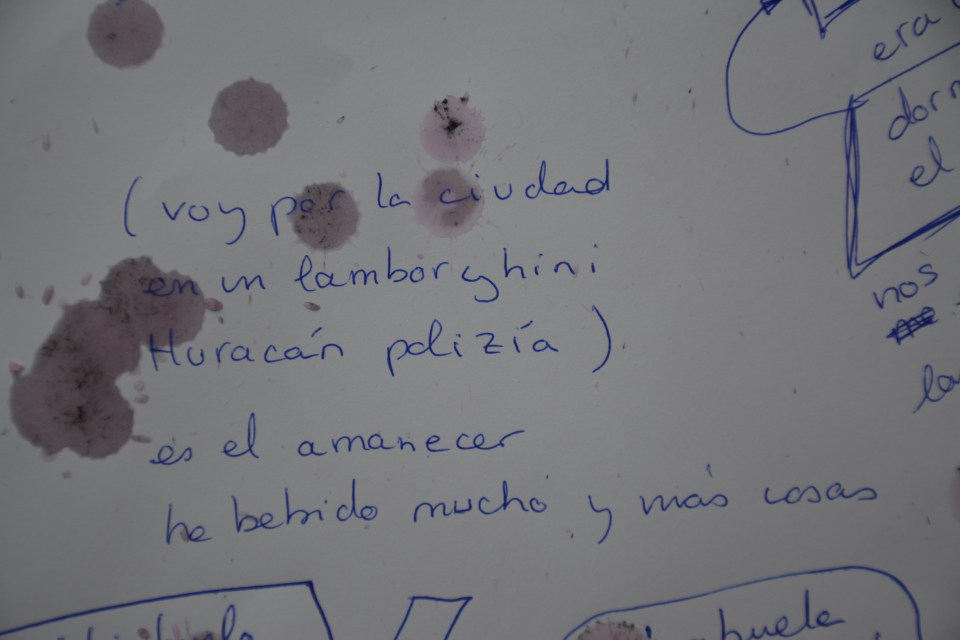 (voy por la ciudad
en un lamborghini
Huracán polizía)
es el amanecer
he bebido mucho y más cosas
era
el
nos